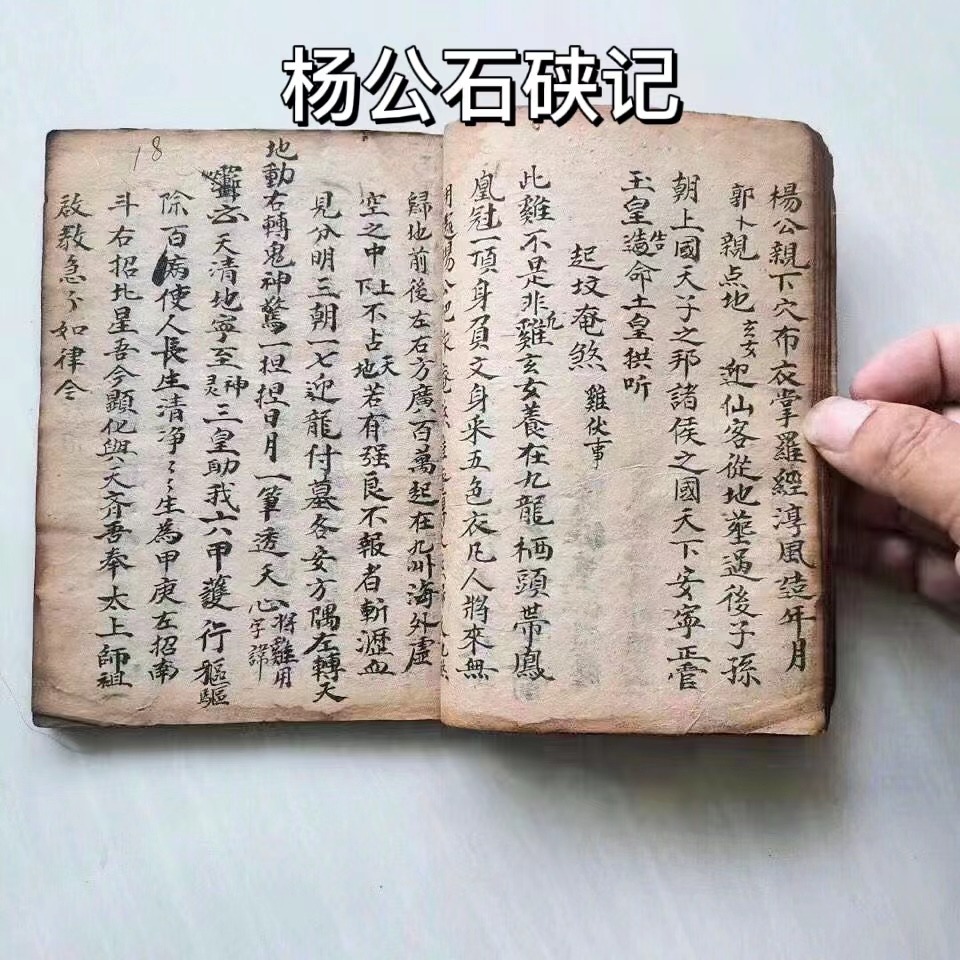 杨公石硖记
楊公親下穴布衣掌羅經淳風造年月
郭卜親点地玄女起仙客從地塟過後子孫
朝上國天子之邦諸侯之國天下安寧正管
玉皇造告命土皇拱听
起坟奄煞 雞伏事
此雞不是非凡雞玄女養在九龍栖頭帶鳳
凰冠一頂身負文身来五色衣凡人將來無
歸地前後左右方廣百萬起在九州海外虛
空之中上下不占天地若有强良不報者斬瀝血
見分明三朝一七迎龍付墓各安方隅左轉天
地動右轉鬼神驚一担担日月一筆透天心将雞用字諱
天清地寧至神灵三皇助我六甲護行驅
除百病使人長生清净〻生為甲庚左招南
斗右招北星吾今顯化與天齐吾奉太上師祖
啟教急〻如律令
18